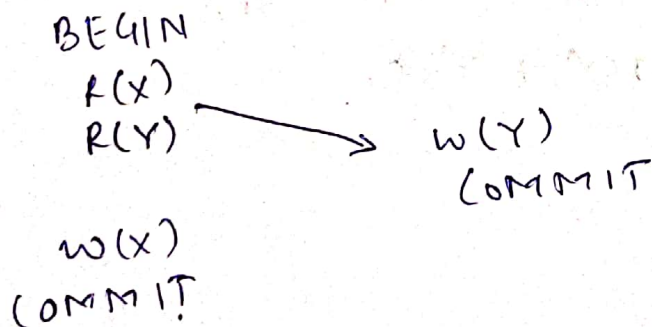 BEGIN
R(X)
R(Y)
W(Y)
COMMIT
W(X)
COMMIT